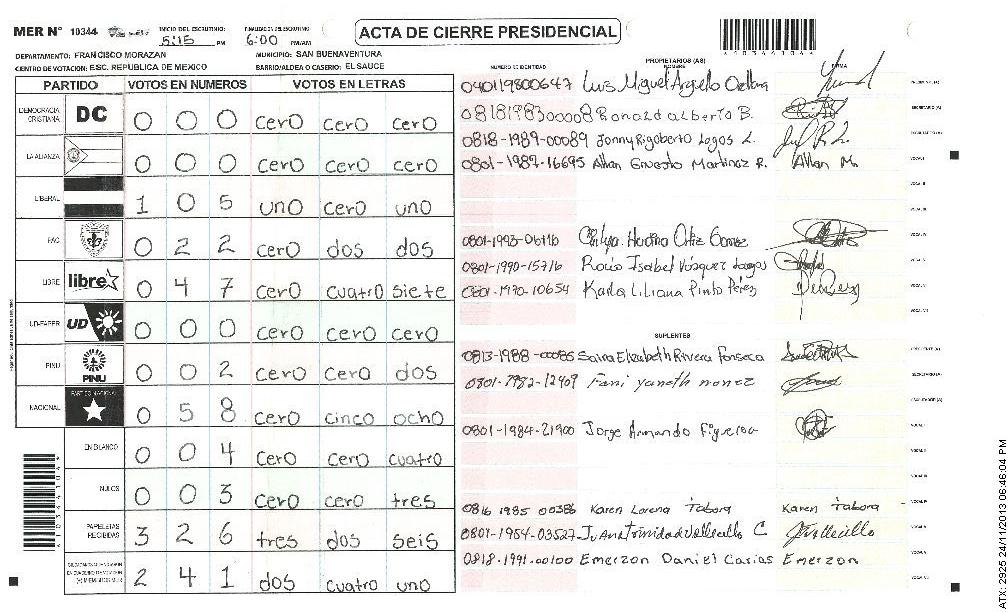 MER Nº 10344 INICIO DEL ESCRUTINIO: 5:15 PM FINALIZACION DEL ESCRUTINIO 6:00 PM/AM ACTA DE CIERRE PRESIDENCIAL
DEPARTAMENTO: FRANCISCO MORAZAN MUNICIPIO: SAN BUENAVENTURA
CENTRO DE VOTACION: ESC. REPUBLICA DE MEXICO BARRIO/ALDEA O CASERIO: EL SAUCE
PARTIDO VOTOS EN NUMEROS VOTOS EN LETRAS
DEMOCRACIA CRISTIANA DC 0 0 0 cero cero cero
LA ALIANZA 0 0 0 cero cero cero
LIBERAL 1 0 5 uno cero uno
PAC 0 2 2 cero dos dos
LIBRE libre 0 4 7 cero cuatro siete
UD-FAPER UD 0 0 0 cero cero cero
PINU PINU 0 0 2 cero cero dos
NACIONAL PARTIDO NACIONAL 0 5 8 cero cinco ocho
EN BLANCO 0 0 4 cero cero cuatro
NULOS 0 0 3 cero cero tres
PAPELETAS RECIBIDAS 3 2 6 tres dos seis
2 4 1 dos cuatro uno
NUMERO DE IDENTIDAD PROPIETARIOS (AS) NOMBRE FIRMA
040119800647 Luis Miguel
0818198300008 Ronald alberto B.
0818-1989-00089 Jonny Rigoberto Lagos L.
0801-1987-16695 Allan Ernesto Martinez R. Allan M.
0801-1993-06116 Ortiz Gomez
0801-1990-15716 Rocio Isabel Vásquez
0801-1970-10654 Karla Liliana Pinto Pérez
SUPLENTES
0813-1988-00085 Saira Elizabeth Rivera Fonseca
0801-1982-12409 Fani yaneth nonez
0801-1984-21900 Jorge Armando Figueroa
0816 1985 00386 Karen Lorena Tabora Karen Tabora
0801-1954-03527 Juana Trinidad Vallecillo C
0818-1991-00100 Emerzon Daniel Casias Emerzon
ATX: 2925 24/11/2013 06:46:04 PM